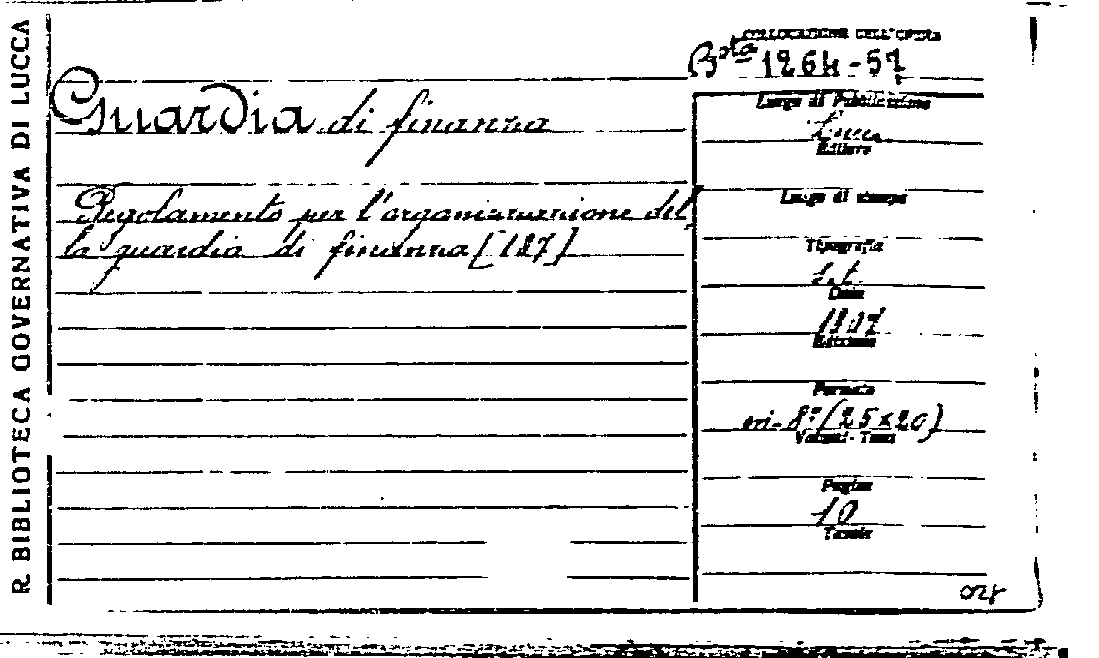 R. BIBLIOTECA GOVERNATIVA DI LUCCA
COLLOCAZIONE DELL'OPERA
Bsta 1264-57
Guardia di finanza
Regolamento per l'organizzazione del
la guardia di finanza [127]
Luogo di Pubblicazione
Editore
Luogo di stampa
Tipografia
s.t.
Data
1807
Edizione
Formato
8° (25x20)
Volumi - Tomi
Pagine
10
Tavole